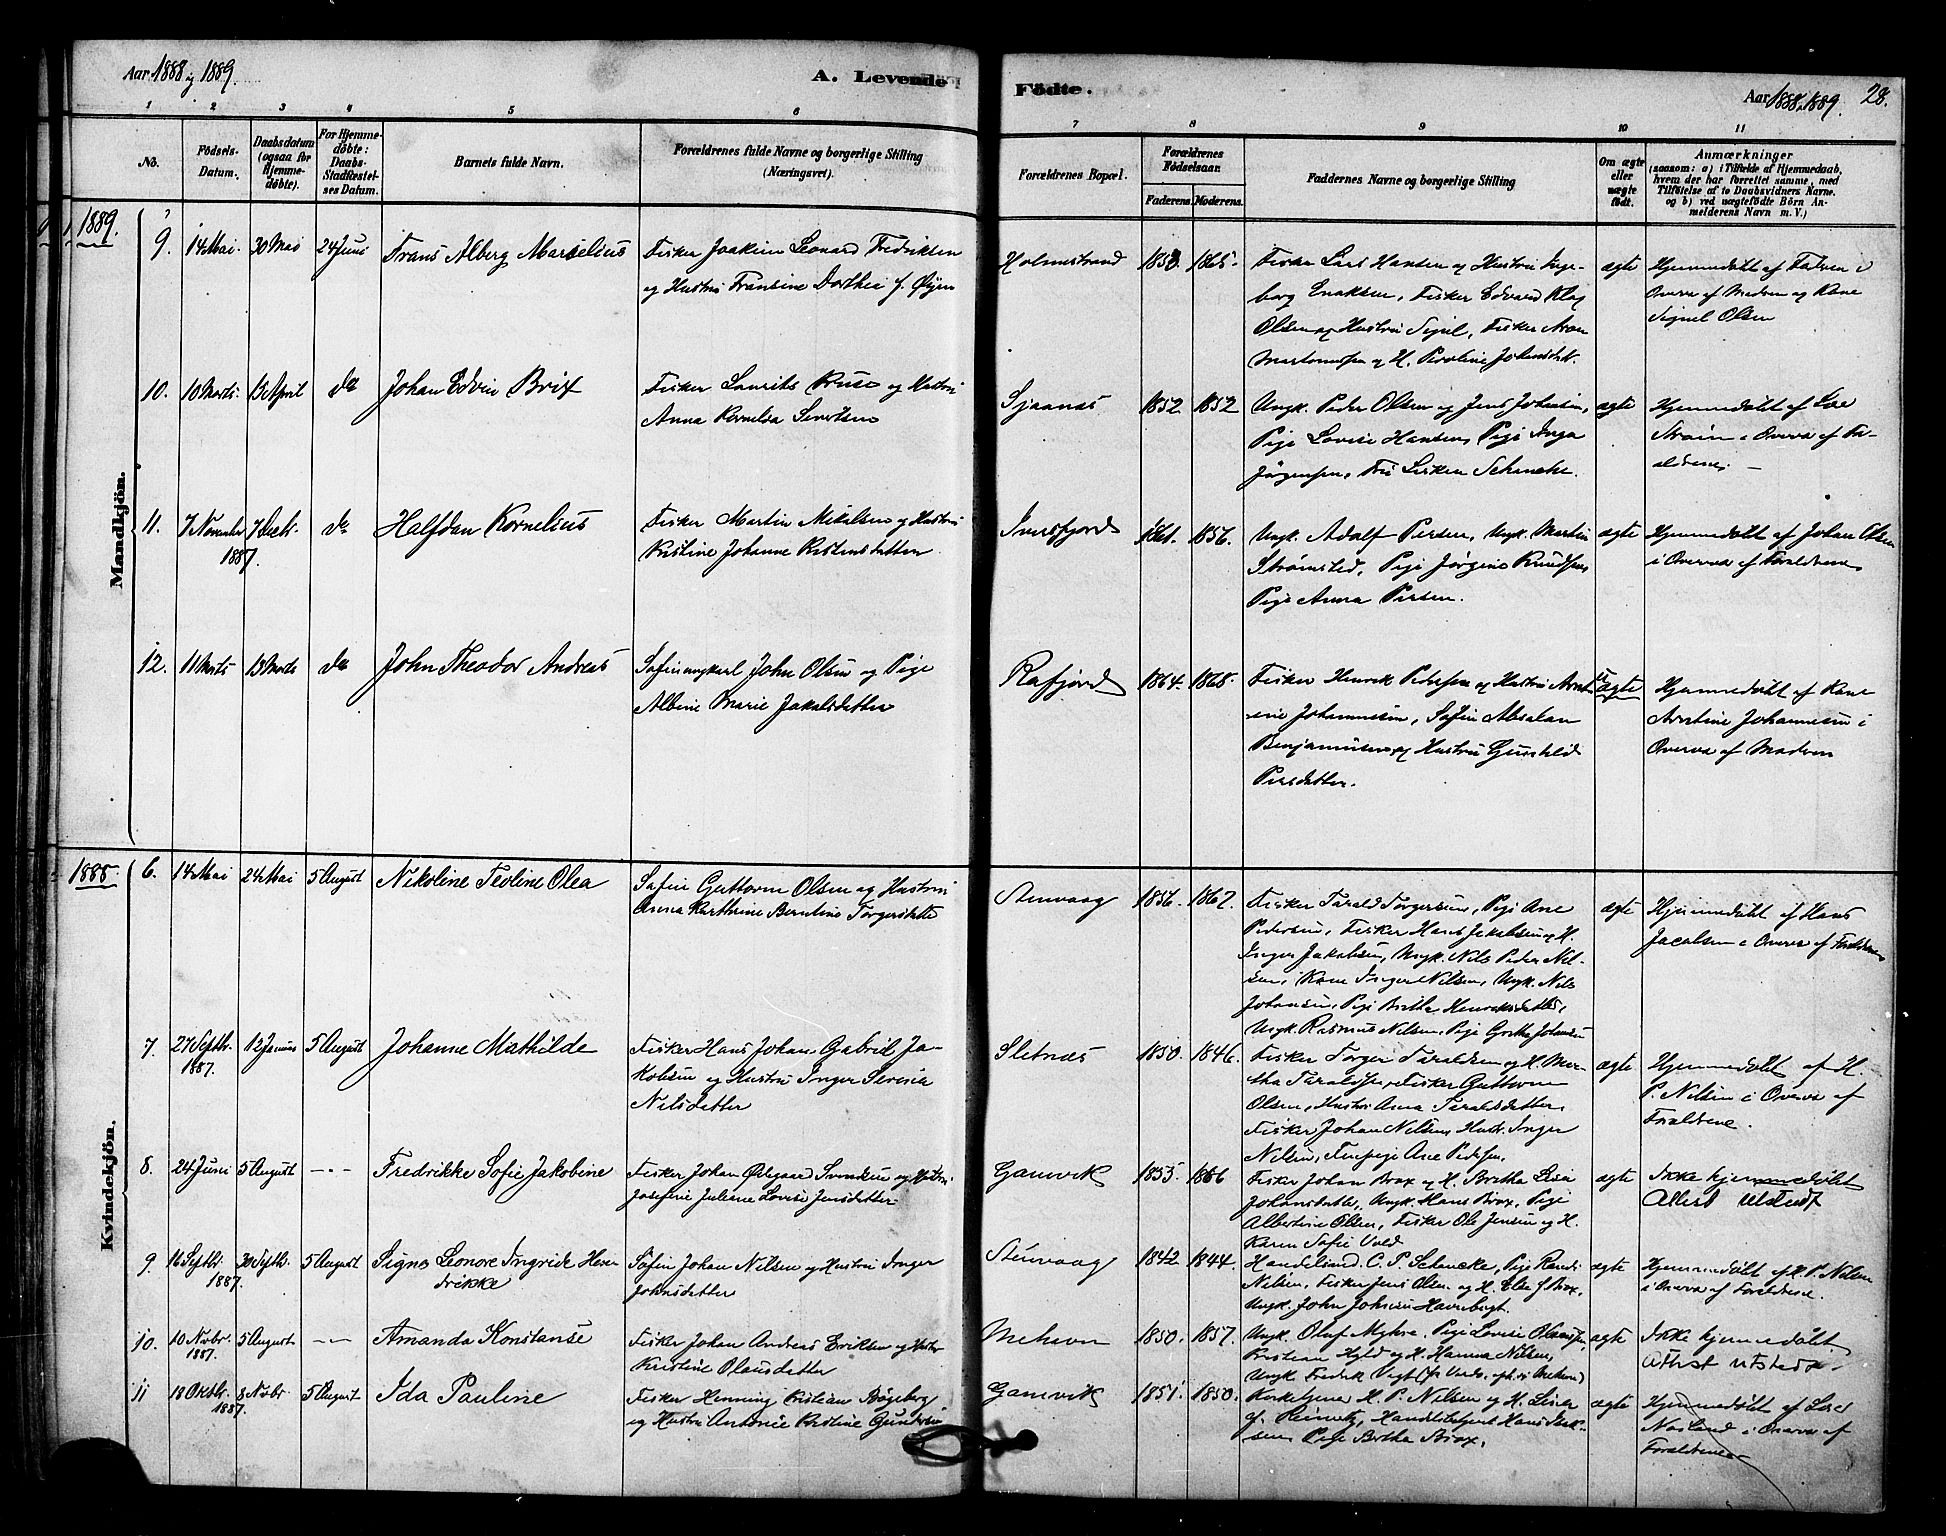 Aar 1888 og 1889.
A. Levende Fødte.
Aar 1888, 1889. 28.
1 2 3 4 5 6 7 8 9 10 11
No.
Fødsels-Datum.
Daabsdatum (ogsaa for Hjemmedøbte).
For Hjemmedøbte: Daabs-Stadfæstelses Datum.
Barnets fulde Navn.
Forældrenes fulde Navne og borgerlige Stilling (Næringsvei).
Forældrenes Bopæl.
Forældrenes Fødselsaar.
Faderens. Moderens.
Faddernes Navne og borgerlige Stilling
Om ægte eller uægte født.
Anmærkninger
(saasom: a) i Tilfælde af Hjemmedaab, hvem der har forrettet samme, med Tilføielse af to Daabsvidners Navne. og b) ved uægtefødte Børn Anmelderens Navn m. V.)
Mandkjön.
1889.
9. 14 Mai 30 Mai 24 Juni Frans Alberg Marselius
Fisker Joakim Leonard Fredriksen
og Hustru Fransine Dorthea f. Øijen
Holmstrand 1853 1865.
Fisker Lars Hansen og Hustru Inge-
borg Enoksen, Fisker Edvard Klag
Olsen og Hustru Signel, Fisker Aron
Martanussen og H. Peroline Johnsdat.
ægte
Hjemmedøbt af Fatren i
Overvær af Madren og Kone
Signel Olsen
10. 10 Marts. 13 April do Johan Edvin Brix
Fisker Laurits Kruse og Hustru
Anna Kornelia Sivertsen
Sjaanæs 1852 1852
Ungk. Peder Olsen og Jens Johansen,
Pige Lovise Hansen, Pige Inga
Jørgensen, Frk Lisken Schancke.
ægte
Hjemmedøbt af Lar
Strøm i Overvær af Fo-
rældrene. —
11. 7 November 1887. 7 Decbr. do Halfdan Kornelius
Fisker Martin Mikalsen og Hustru
Kristine Johanne Kristensdatter.
Iversfjord 1861. 1856.
Ungk. Adolf Persen, Ungk. Martin
Strømsted, Pige Jørgine Knudsen
Pige Anna Persen.
ægte
Hjemmedøbt af Johan Olsen
i Overvær af Forældrene
12. 11 Marts 13 Marts do John Theodor Andreas
Søfinungkarl John Olsen og Pige
Albine Marie Jakobsdatter
Rafjord 1864. 1868.
Fisker Henrik Pedersen og Hustru Arnt-
ine Johannesen, Søfin Absalon
Benjaminsen og Hustru Gunhild
Persdatter.
Uægte
Hjemmedøbt af Kone
Arntine Johannesen i
Overvær af Madren
Kvindekjön.
1888.
6. 14 Mai 24 Mai 5 August Nikoline Teoline Olea
Søfin Guttorm Olsen og Hustru
Anna Kathrine Berntine Torgersdatter
Stenvaag 1856. 1862.
Fisker Tarald Torgersen, Pige Ane
Pedersen, Fisker Hans Jakobsen og H.
Inger Jakobsen, Ungk. Nils Peder Nil-
sen, Kone Inger Nilsen, Ungk. Nils
Johansen, Pige Britha Henriksdatter,
Ungk. Rasmus Nilsen, Pige Gretha Johansen
ægte
Hjemmedøbt af Hans
Jacobsen i Overvær af Forældrene
7. 27 Septbr. 1887. 12 Januar 5 August Johanne Mathilde
Fisker Hans Johan Gabriel Ja-
kobsen og Hustru Inger Serine
Nilsdatter
Sletnæs 1850. 1846.
Fisker Torger Taraldsen og H. Mar-
tha Taraldsen, Fisker Guttorm
Olsen, Hustru Anna Taraldsdatter,
Fisker Johan Nilsen, Hustr. Inger
Nilsen, Finpige Ane Pedersen.
ægte
Hjemmedøbt af H.
P. Nilsen i Overvær af
Forældrene.
8. 24 Juni 5 August — Fredrikke Sofie Jakobine
Fisker Johan Odegaard Svendsen og Hustru
Josefine Juliane Lovise Jensdatter.
Gamvik 1855 1866
Fisker Johan Brox og H. Bretha Lisa
Johansdatter, Ungk. Hans Brox, Pige
Albertine Olsen, Fisker Ole Jensen og H.
Karen Sofie Vold.
ægte
Ikke hjemmedøbt
Attest utstedt
9. 16 Septbr. 1887. 30 Septbr. 5 August Signe Leonore Ingride Hen-
drikke
Søfin Johan Nilsen og Hustru Inger
Johnsdatter
Stenvaag 1842 1844.
Handelsmd. C. P. Schancke, Pige Randi
Nilsen, Fisker Jens Olsen og H. Else f Brox,
Ungk. John Johnsen Havnbugt.
ægte
Hjemmedøbt af H. P. Nilsen
i Overvær af Forældrene.
10. 10 Novbr. 1887. 5 August — Amanda Konstanse
Fisker Johan Andreas Eriksen og Hustru
Kristine Olausdatter
Mehavn 1850. 1857.
Ungk. Olaf Myhre, Pige Lovise Olaussen,
Kristian Hyld og H. Hanna Nilsen,
Ungk. Fredrik Vagt (fr Vardø, oph. i Mehavn)
ægte
Ikke hjemmedøbt.
Attest utstedt
11 18 Oktbr. 1887. 8 Novbr. 5 August Ida Pauline
Fisker Henning Kristian Bøgeberg
og Hustru Antonie Kristine Gundersen
Gamvik 1851. 1850.
Kirketjener H. P. Nilsen og H. Lisa
f. Steinvig, Handelsbetjent Hans Isak-
sen, Pige Bertha Brox.
ægte
Hjemmedøbt af Lars
Norland i Overvær af
Forældrene